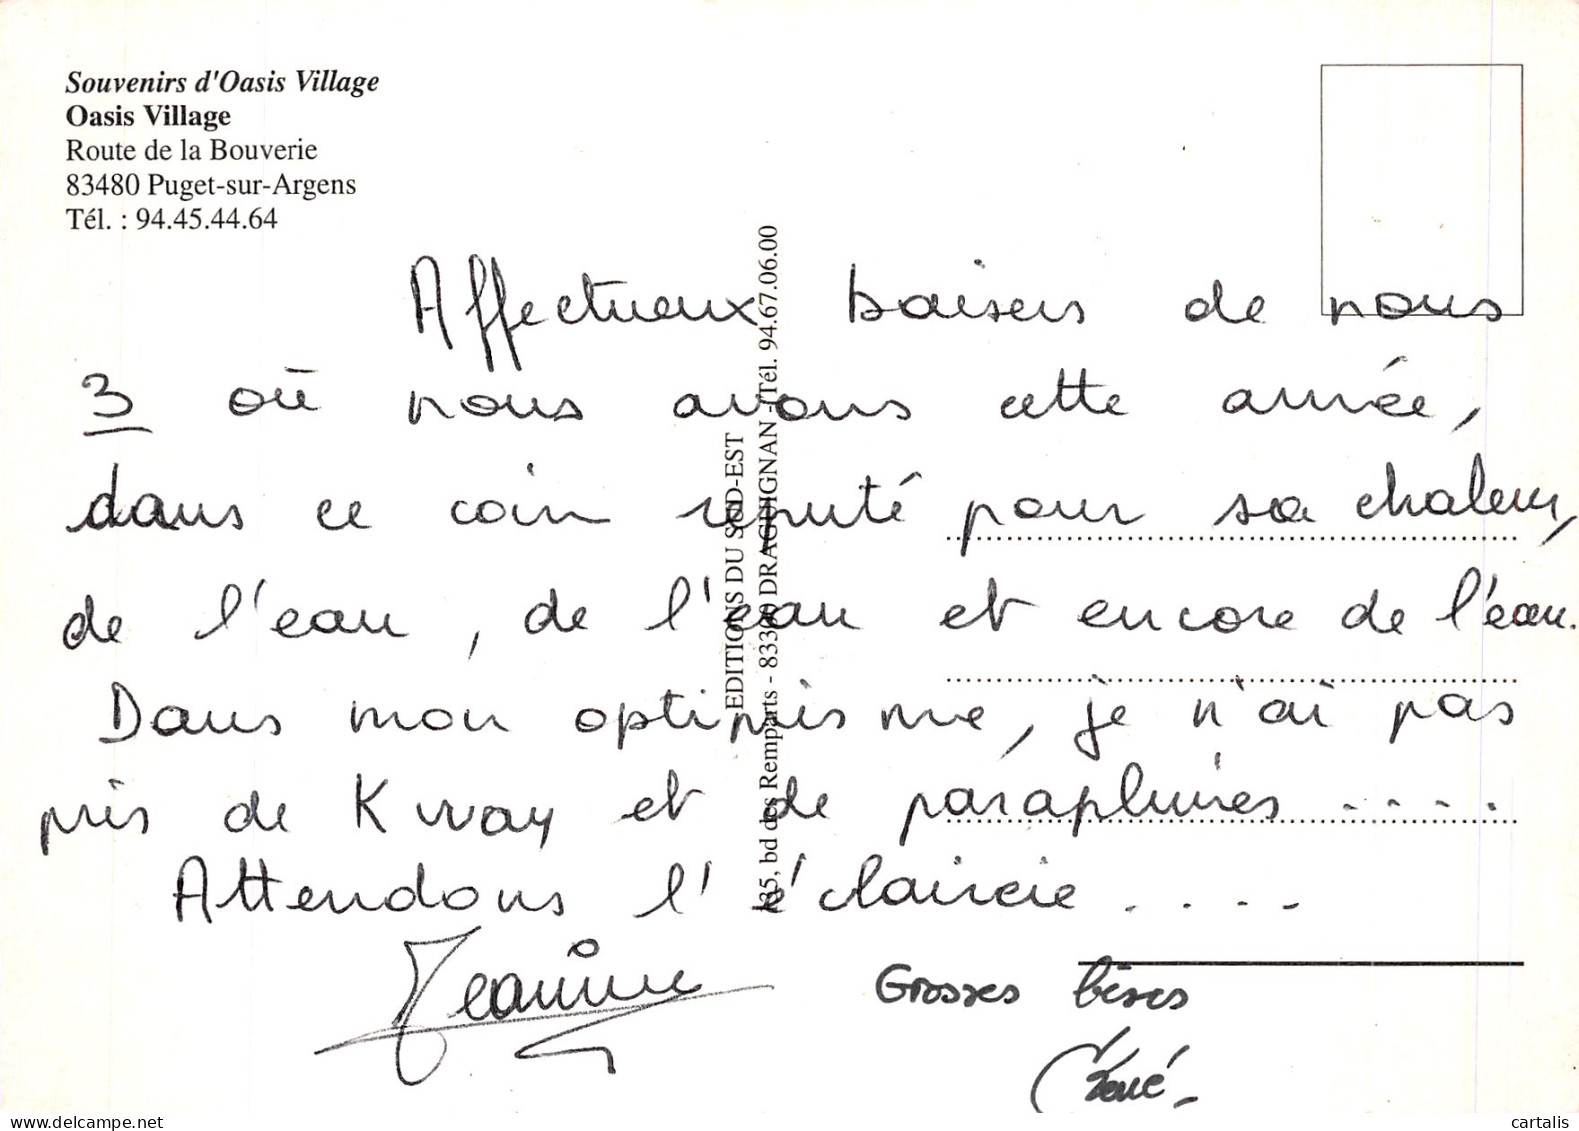 Souvenirs d'Oasis Village
Oasis Village
Route de la Bouverie
83480 Puget-sur-Argens
Tél. : 94.45.44.64
EDITIONS DU SUD-EST
135, bd des Remparts - 83300 DRAGUIGNAN - Tél. 94.67.06.00
Affectueux baisers de nous
3 où nous avons cette année,
dans ce coin réputé pour sa chaleur,
de l'eau, de l'eau et encore de l'eau.
Dans mon optimisme, je n'ai pas
pris de K way et de parapluies ....
Attendons l'éclaircie ....
Jeannine
Grosses bises
René
cartalis
www.delcampe.net